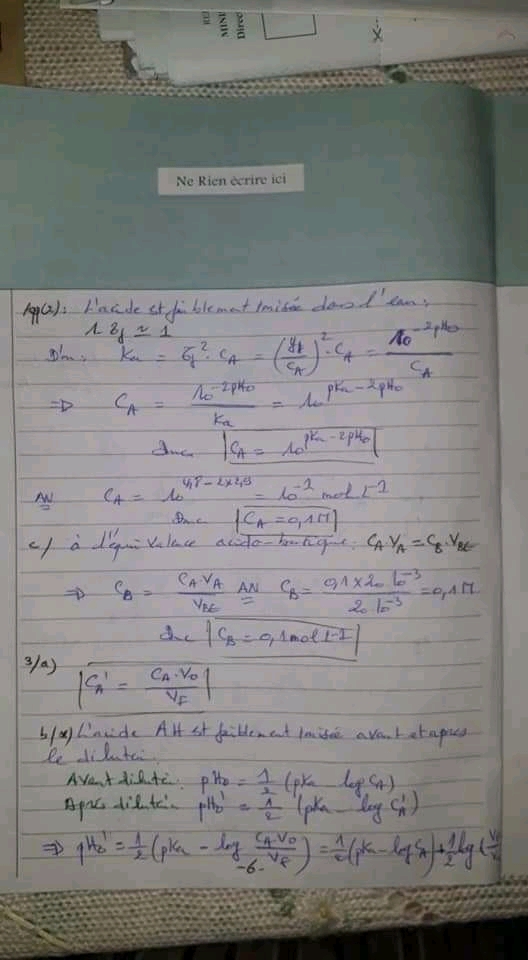 MINI
Direc
Ne Rien écrire ici
App(2): L'acide est faiblement ionisée dans l'eau:
1
D'où: Ka = τf². CA = (yf/CA)². CA = 10^-2pH0/CA
=> CA = 10^-2pH0/Ka = 10^pKa-2pH0
Donc CA = 10^pKa-2pH0
AN CA = 10^4,8-2x2,9 = 10^-1 mol L-1
Donc CA = 0,1M
c/ à l'équivalence acido-basique: CA VA = CB.VBE
=> CB = CA.VA/VBE AN CB = 0,1x20 10^-3/20 10^-3 = 0,1M
Donc CB = 0,1 mol L-1
3/a)
C'A = CA.V0/VF
b/α) L'acide AH est faiblement ionisée avant et après
le dilution.
Avant dilution: pH0 = 1/2 (pKa - log CA)
Après dilution pH0' = 1/2 (pKa - log C'A)
=> pH0' = 1/2 (pKa - log CA.V0/VF) = 1/2 (pKa - log CA) + 1/2 log (
-6-